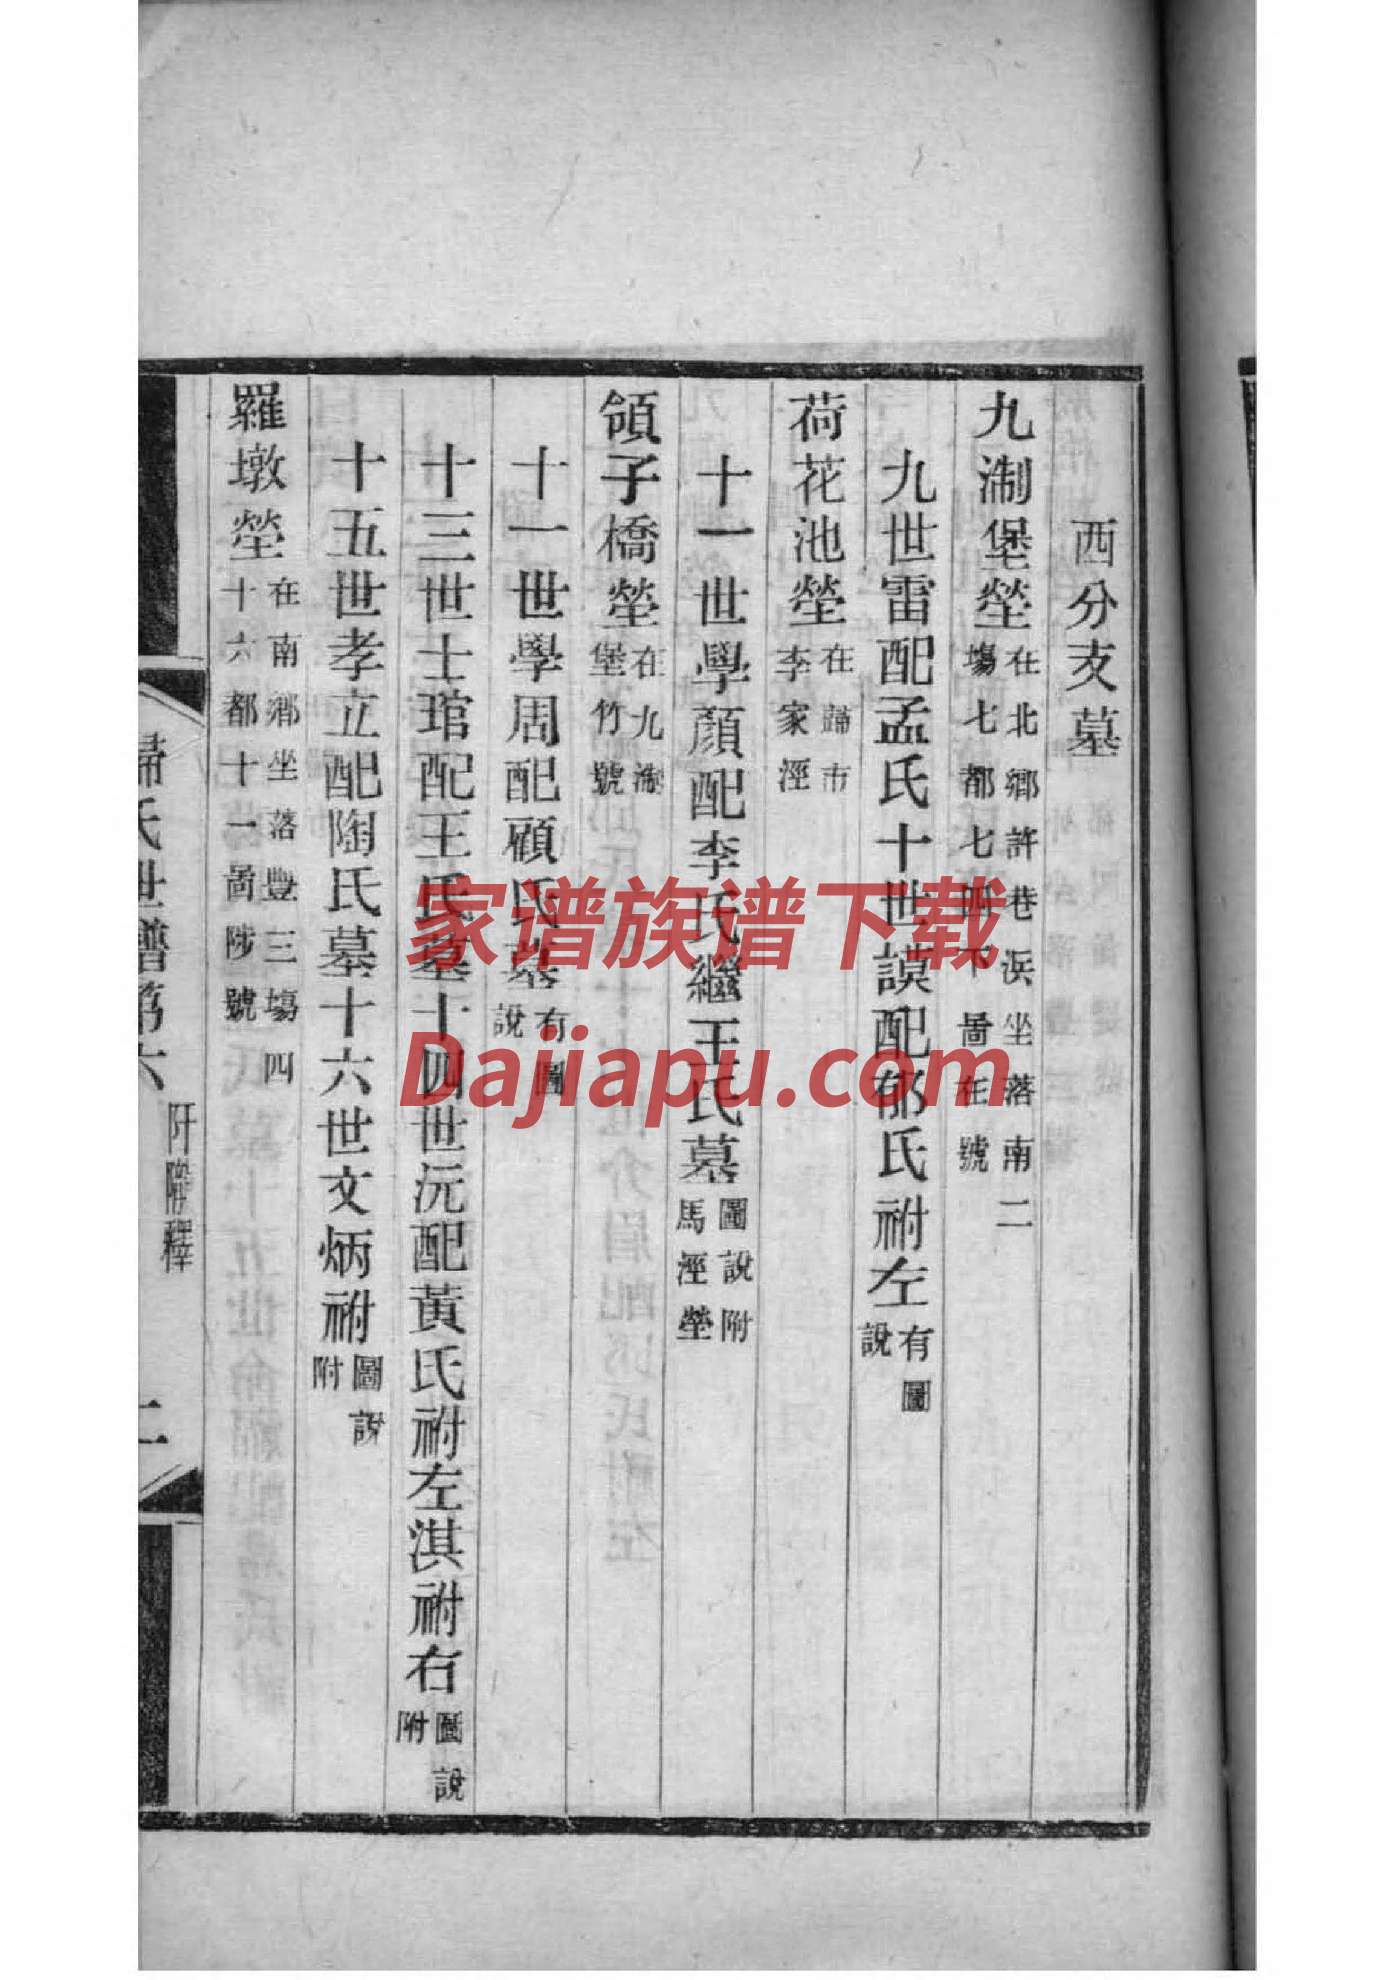 西分支墓
九淛堡塋在北鄉許巷浜坐落南二
塲七都七啚在號
九世雷配孟氏十世謨配郁氏祔左有圖
說
荷花池塋在歸市
李家涇
十一世學顏配李氏繼王氏墓圖說附
馬涇塋
領子橋塋在九淛
堡竹號
十一世學周配顧氏墓有圖
說
十三世士琯配王氏墓十四世沅配黃氏祔左淇祔右圖說
附
十五世孝立配陶氏墓十六世文炳祔圖說
附
羅墩塋在南鄉坐落豐三塲四
十六都十一啚陟號
歸氏世譜第六
二
家谱族谱下载
Dajiapu.com